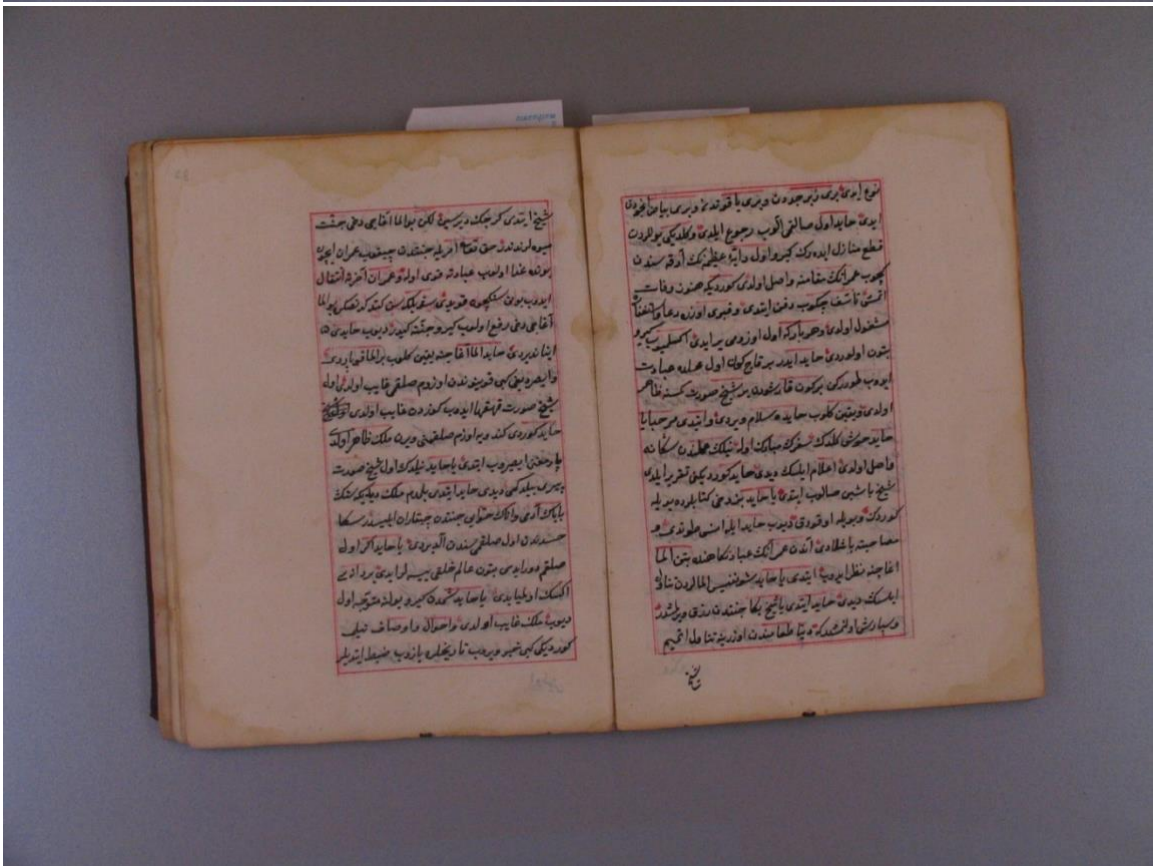 نوع ایدی بری زبرجددن و بری یاقوتدن و بری بیاض اینجودن
ایدی حاید اول صالقمی آلوب رجوع ایلدی و کلدیکی یوللردن
قطع منازل ایده رك كیرو اول دابهٔ عظیمه نك آرقه سندن
کچوب عمرانك مقامنه واصل اولدی کوردیکه هنوز وفات
اتمش تأسف چکوب دفن ایتدی و قبری اوزره دعا
مشغول اولدی و هر بار که اول اوزومی یر ایدی اکسلمیوب کیرو
بتون اولوردی حاید ایدر بر قاچ کون اول محلده عبادت
ایدوب طوررکن بر کون قارشودن بر شیخ صورت کمسنه ظاهر
اولدی و یقین کلوب حایده سلام ویردی و ایتدی مرحبا یا
حاید خوش کلدك سفرك مبارك اوله نیلك محلندن سکا نه
واصل اولدی اعلام ایلسك دیدی حاید کوردیکین تقریر ایلدی
شیخ باشین صالوب ایتدی یا حاید بز دخی کتابلرده بویله
کوردك و بویله اوقودق دیوب حاید ایله انسی طوتدی و
مصاحبته باشلادی آندن عمرانك عبادتکاهنده بتن الما
اغاجنه نظر ایدوب ایتدی یا حاید شو نفیس المالردن تناول
ایلسك دیدی حاید ایتدی یا شیخ بکا جنتدن رزق ویرلمشدر
و سپارش اولنمشدر که دنیا طعامندن اوزرینه تناول اتمیم
شیخ
شیخ ایتدی کرچك دیرسین لکن بو الما اغاجی دخی جنت
میوه لرندندر حق تعالی امریله جنتدن چیقوب عمران ایچون
بونده غدا اولوب عبادته قوی اوله و عمران آخرته انتقال
ایدوب بونی سنکچون قودی
آغاجی دخی رفع اولوب کیرو جنته کیدر دیوب حایدی
ایناندیردی حاید الما آغاجنه یقین کلوب بر الما قوپاردی
و ایصردیغی کبی قوینندن اوزوم صلقمی غایب اولدی اول
شیخ صورت قهقها ایدوب کوزدن غایب اولدی
حاید کوردی کندویه اوزم صلقمنی ویرن ملك ظاهر اولدی
پارمغنی ایصروب ایتدی یا حاید نیلدك اول شیخ صورت
پیری بیلدکمی دیدی حاید ایتدی بلمدم ملك دیدیکه سنك
باباك آدمی و اناك حوایی جنتدن چیقاران ابلیسدر سکا
حسدندن اول صلقمی سندن آلدیردی یا حاید اکر اول
صلقم دورایدی بتون عالم خلقی ییسه لر ایدی بر دانه
اکسك اولمایدی یا حاید شمدن کیرو یولکه متوجه اول
دیوب ملك غایب اولدی و احوال و اوصاف نیلی
کوردیکی کبی خبر ویروب تاریخلره یازوب ضبط ایتدیلر